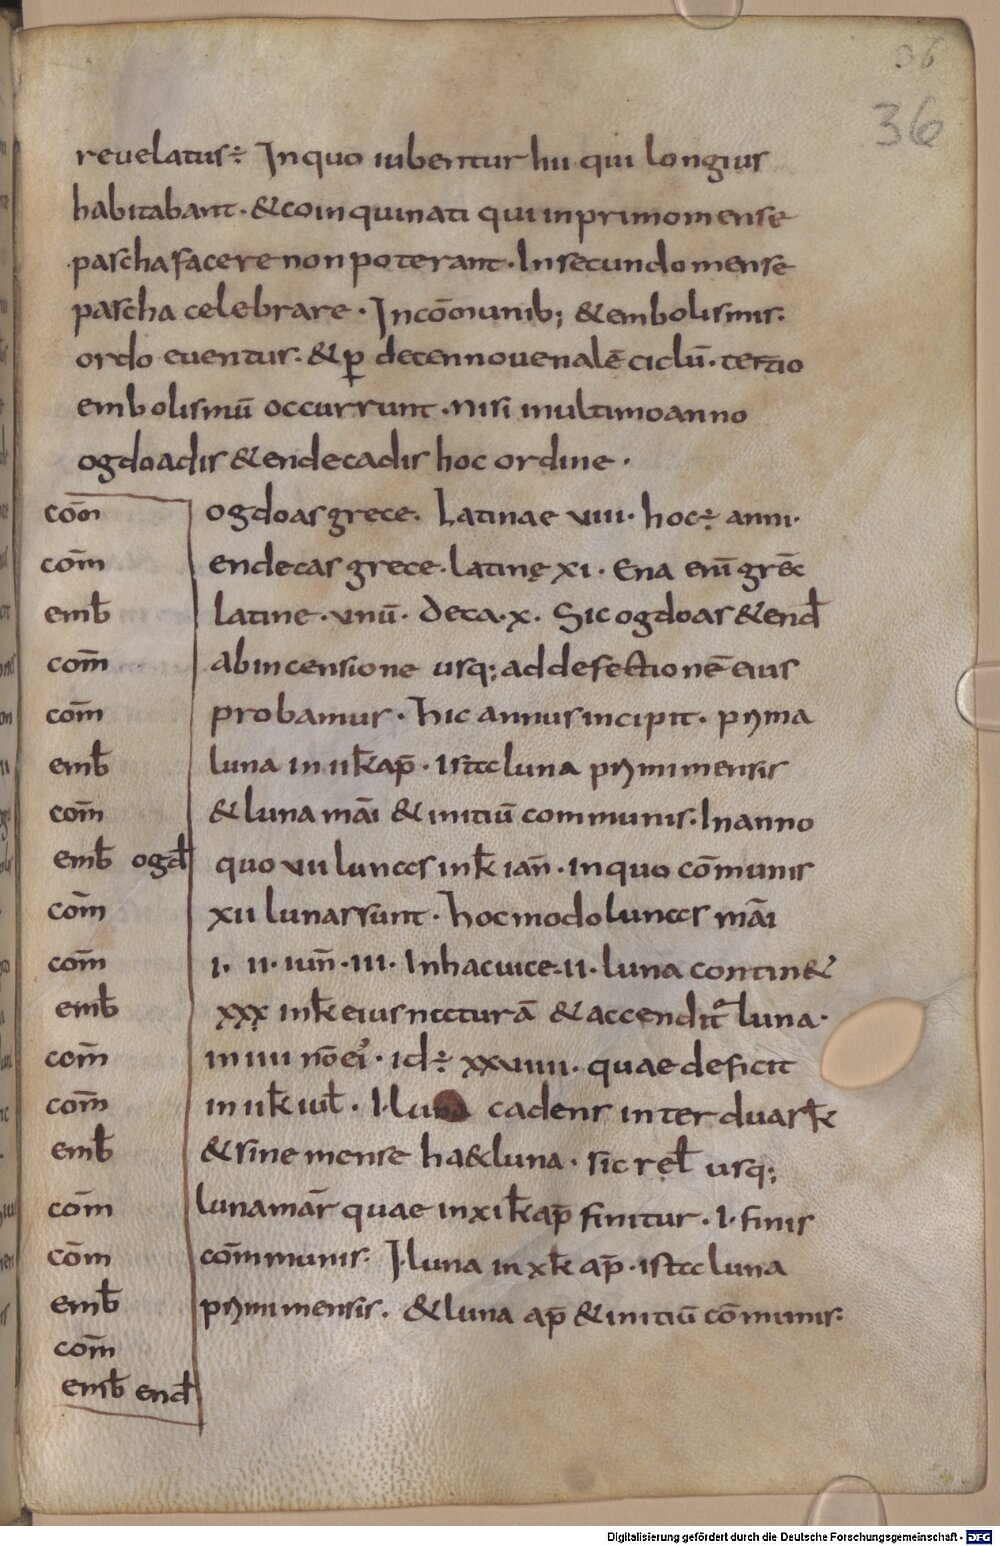 36
36
reuelatus÷ In quo iubentur hii qui longius
habitabant· & coinquinati qui in primo mense
pascha facere non poterant· In secundo mense
pascha celebrare· In cōmunib; & embolismis·
ordo euentus· & ꝑ decennouenalē ciclū· tertio
embolismū occurrunt· nisi in ultimo anno
ogdoadis & endecadis hoc ordine·
com̄
com̄
emb̄
com̄
com̄
emb̄
com̄
emb̄ ogd̄
com̄
com̄
emb̄
com̄
com̄
emb̄
com̄
cōm
emb̄
com̄
emb̄ end̄
ogdoas grece· Latinae viii· hoc÷ anni·
endecas grece· latinę xi· Ena enī grēc
latine· vnū· Deca· x· Sic ogdoas & end̄
ab incensione usq; ad defectionē eius
probamus· hic annus incipit· prima
luna in ii k̄ ap̄· Ista luna primi mensis
& luna māi & initiū communis· In anno
quo vii lunas in k̄ iañ· in quo cōmunis
xii lunas sunt· hoc modo lunas māi
i· ii· iuñ· iii· In hac uice· ii· luna contin&
xxx in k̄ eius naturā & accendit᷑ luna·
in iiii nōei᷒· id÷ xxviiii· quae deficit
in ii k̄ iul̄· I· luna cadens inter duas k̄
& sine mense hab& luna· sic rel̄ usq;
luna mar̄ quae in xi k̄ ap̄ finitur· I· finis
cōmmunis· I· luna in x k̄ ap̄· ista luna
primi mensis· & luna ap̄ & initiū cōmunis·
Digitalisierung gefördert durch die Deutsche Forschungsgemeinschaft · DFG